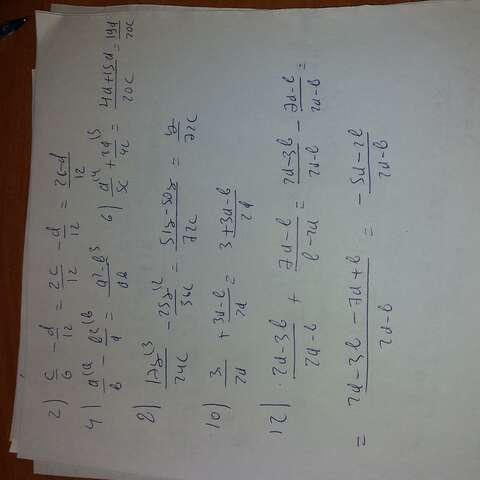 2) c/6 - d/12 = 2c/12 - d/12 = 2c-d/12
4) a^(a/b - b^(b/a = a²-b²/ab 6) a^(4/5c + 3a^(5/4c = 4a+15a/20c = 19a/20c
8) 17y^(3/24c - 25y^(2/36c = 51y-50y/72c = y/72c
10) 3/2d + 3d-b/2d = 3+3d-b/2d
12) 2a-3b/2a-b + 7a-b/b-2a = 2a-3b/2a-b - 7a-b/2a-b =
= 2a-3b-7a+b/2a-b = -5a-2b/2a-b